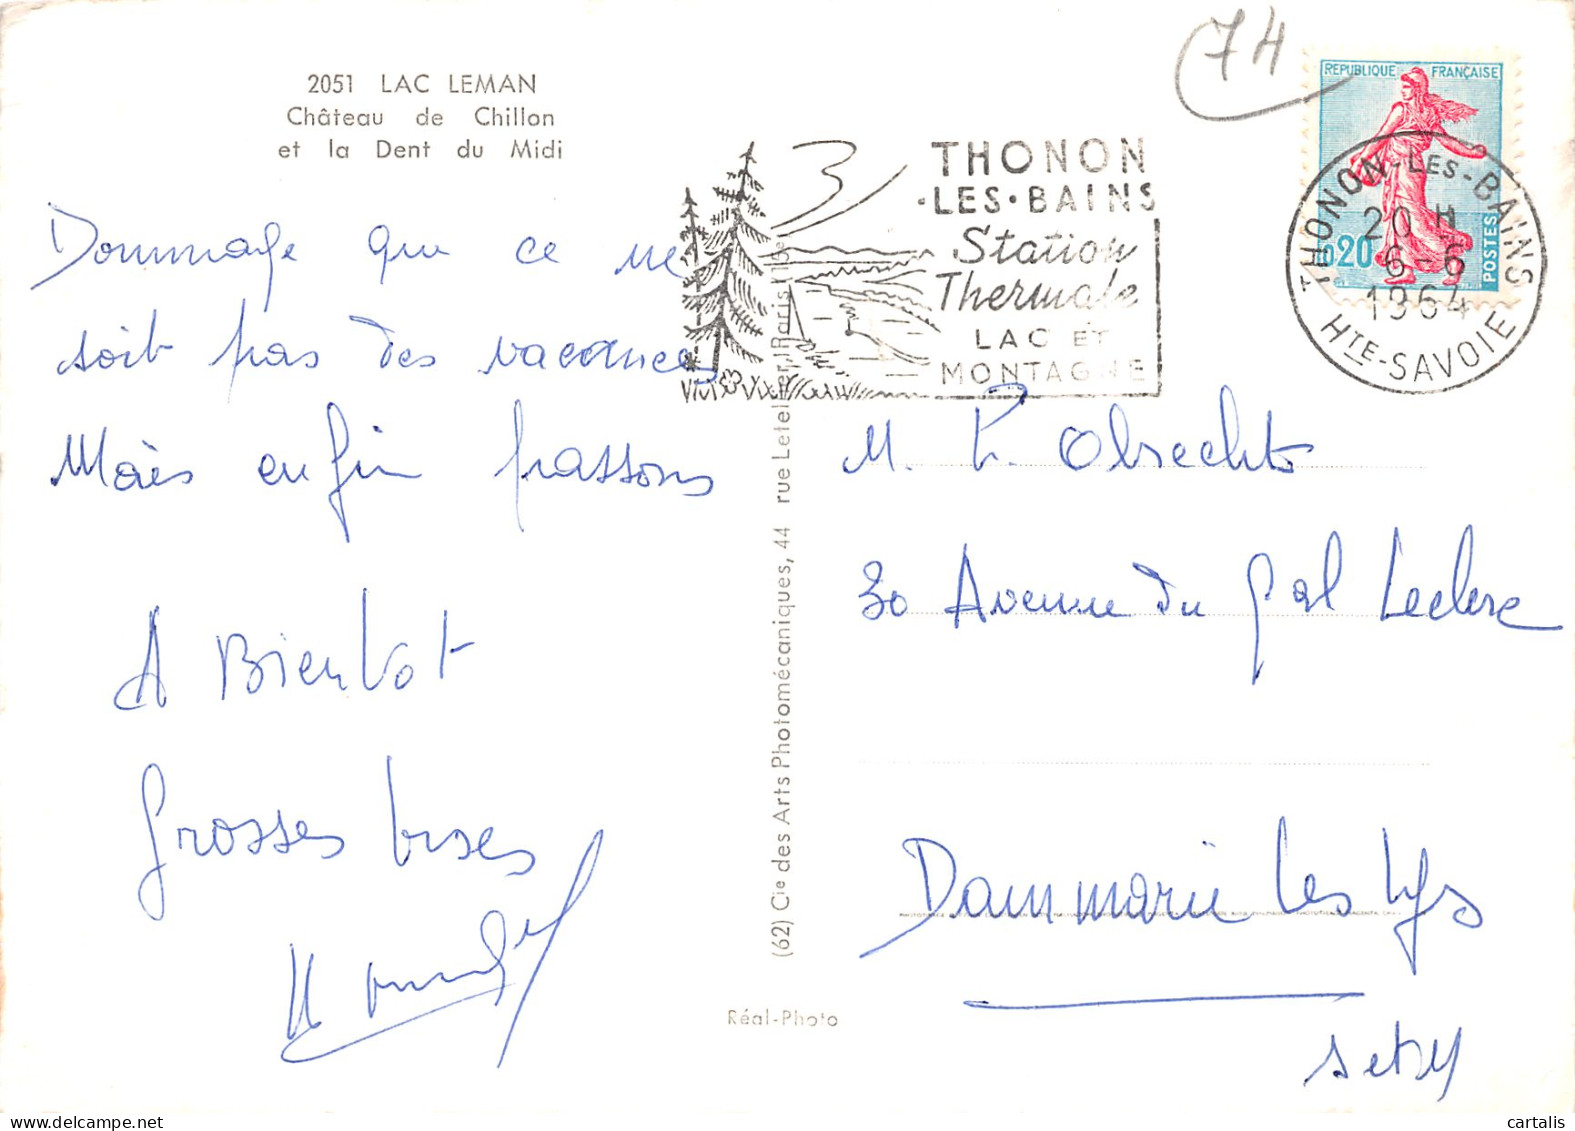 74
2051 LAC LEMAN
Château de Chillon
et la Dent du Midi
REPUBLIQUE FRANÇAISE
0,20
POSTES
THONON-LES-BAINS
20 H
6-6
1964
HTE-SAVOIE
THONON
-LES-BAINS
Station
Thermale
LAC ET
MONTAGNE
Dommage que ce ne
soit pas des vacances
Mais enfin passons
A Bientot
Grosses bises
M. P. Obrechts
30 Avenue du Gal Leclerc
Dammarie les Lys
S et M
(62) Cie des Arts Photomécaniques, 44 rue Letellier, Paris (15e)
Réal-Photo
cartalis